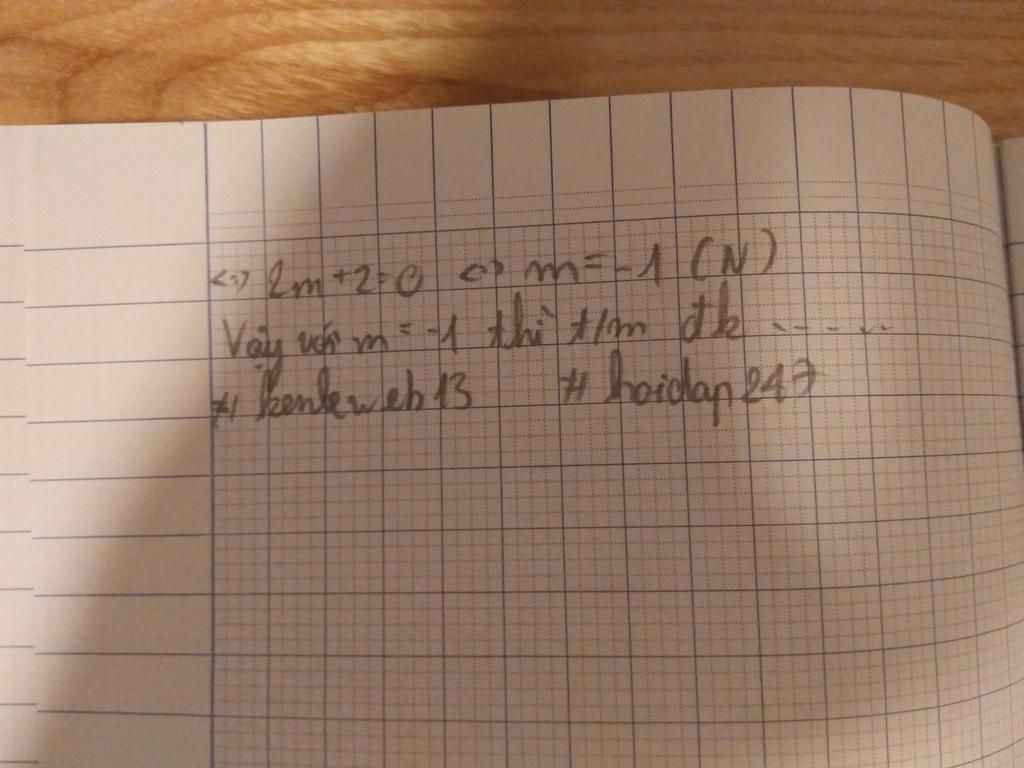 <=> 2m+2=0 <=> m=-1 (N)
Vậy với m=-1 thì t/m đk ......
# kenkeweb13 # hoidap247